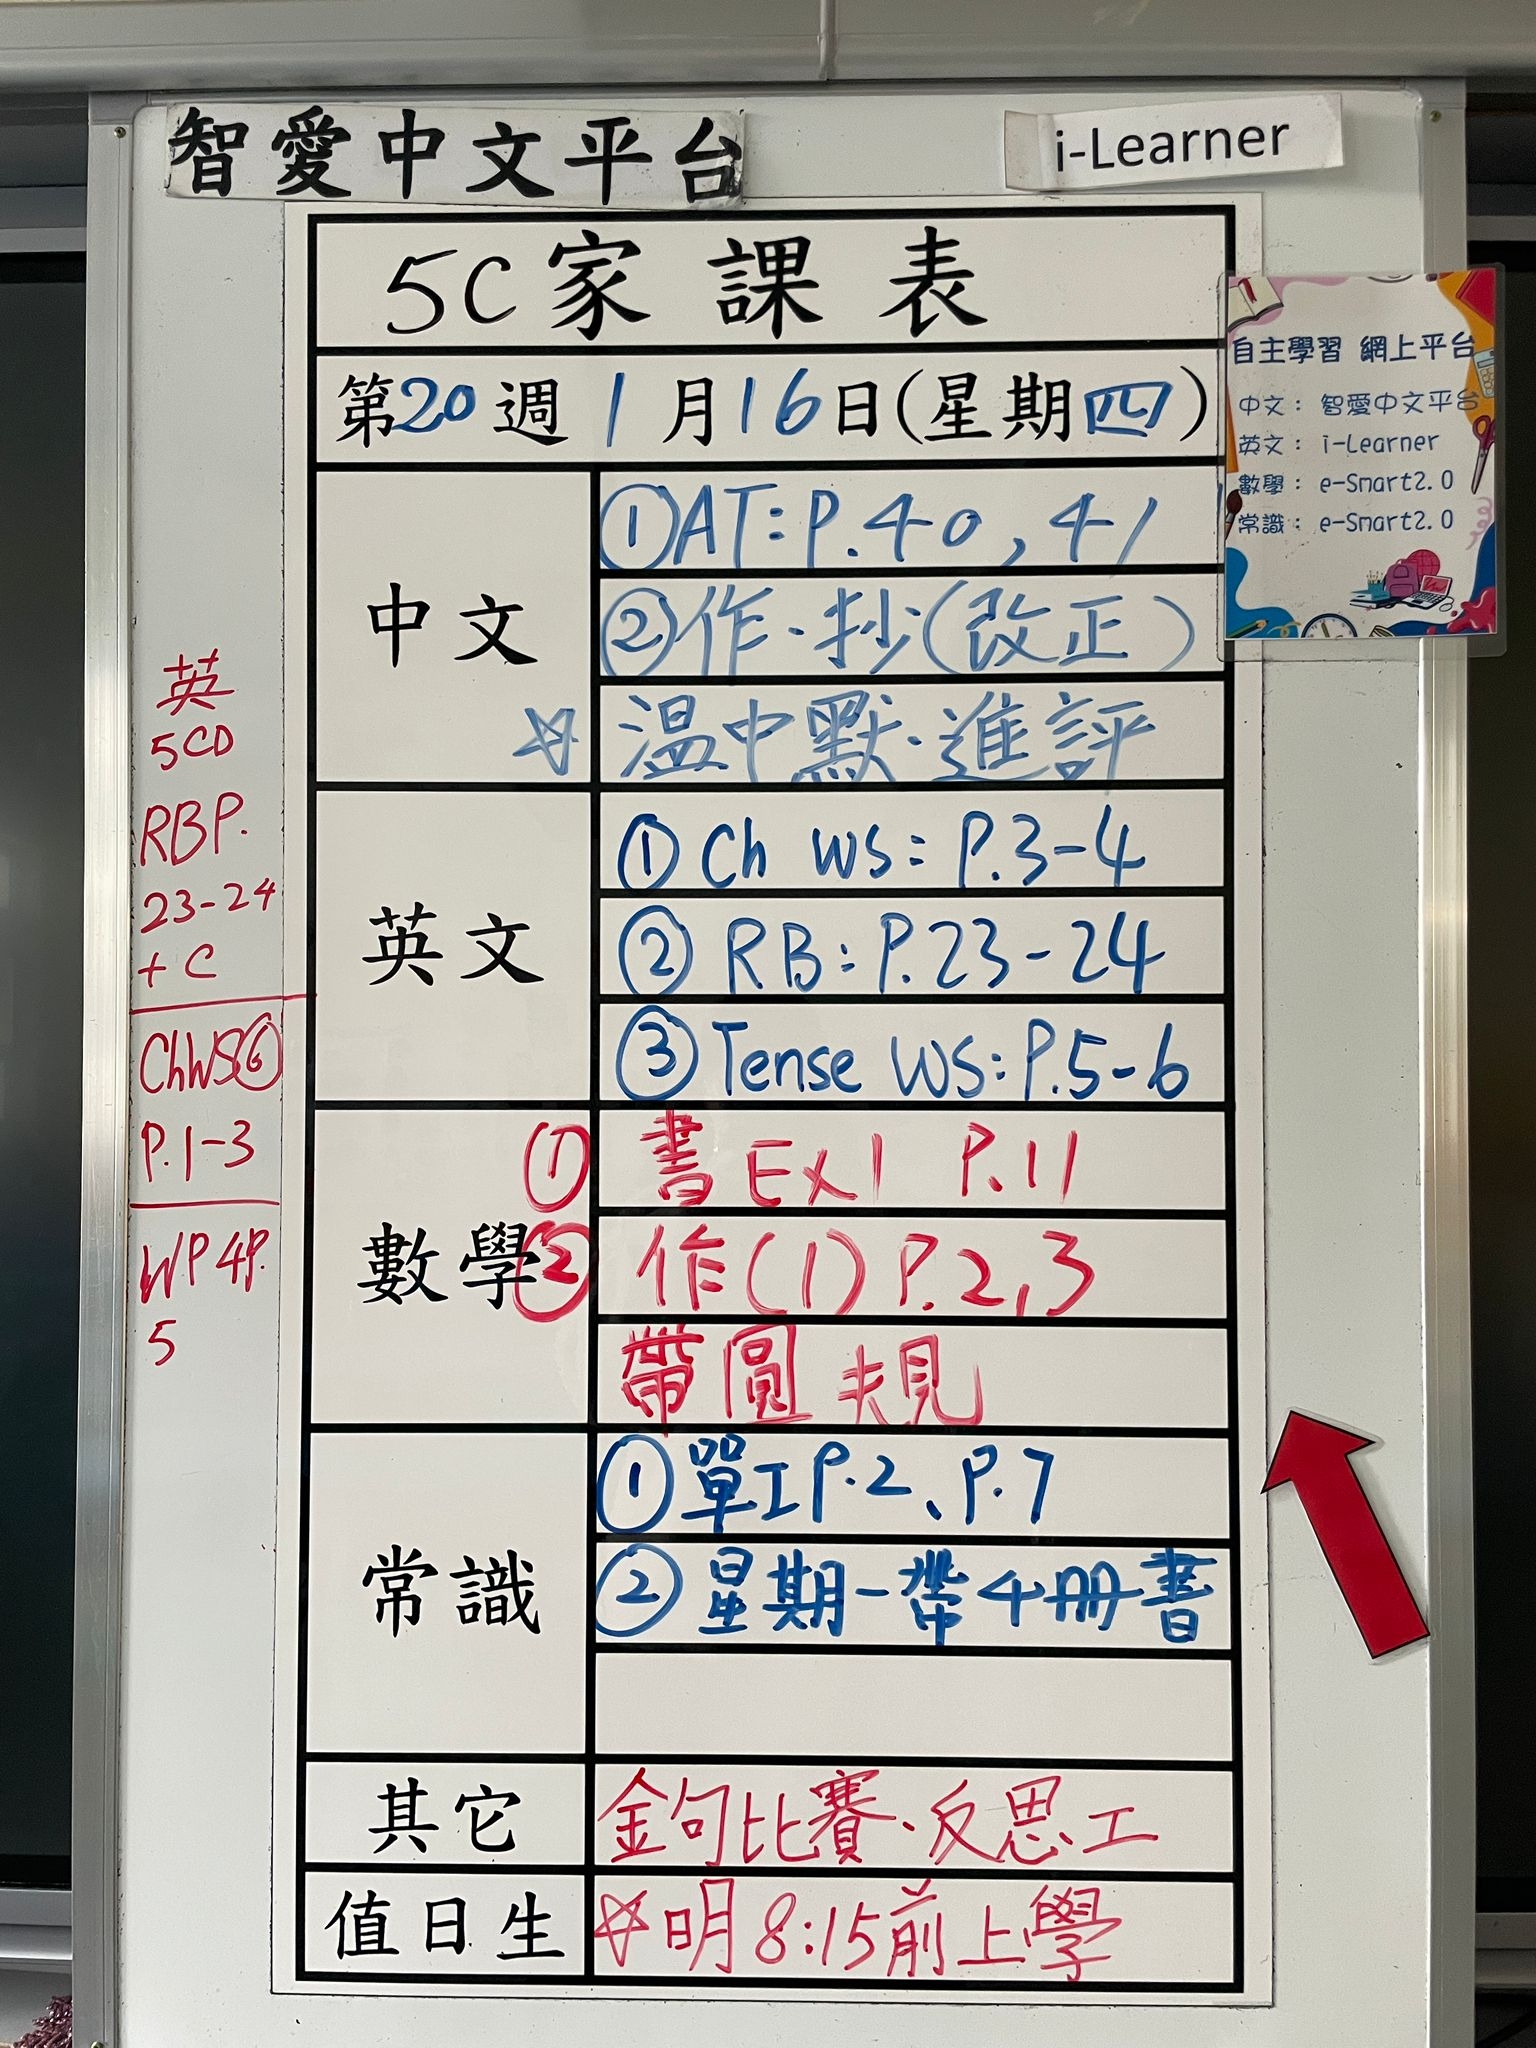 智愛中文平台
i-Learner
5C家課表
第20週 1月16日(星期四)
自主學習 網上平台
中文： 智愛中文平台
英文： i-Learner
數學： e-Smart2.0
常識： e-Smart2.0
中文
①AT:P.40,41
②作·抄(改正)
☆ 溫中默·進評
英文
① Ch WS: P.3-4
② RB: P.23-24
③ Tense WS: P.5-6
數學
① 書 Ex1 P.11
② 作(1) P.2,3
帶圓規
常識
①單工P.2、P.7
②星期一帶4冊書
其它
金句比賽、反思工
值日生
☆明8:15前上學
英
5CD
RBP.
23-24
+ C
ChWS⑥
P.1-3
WP4P.
5